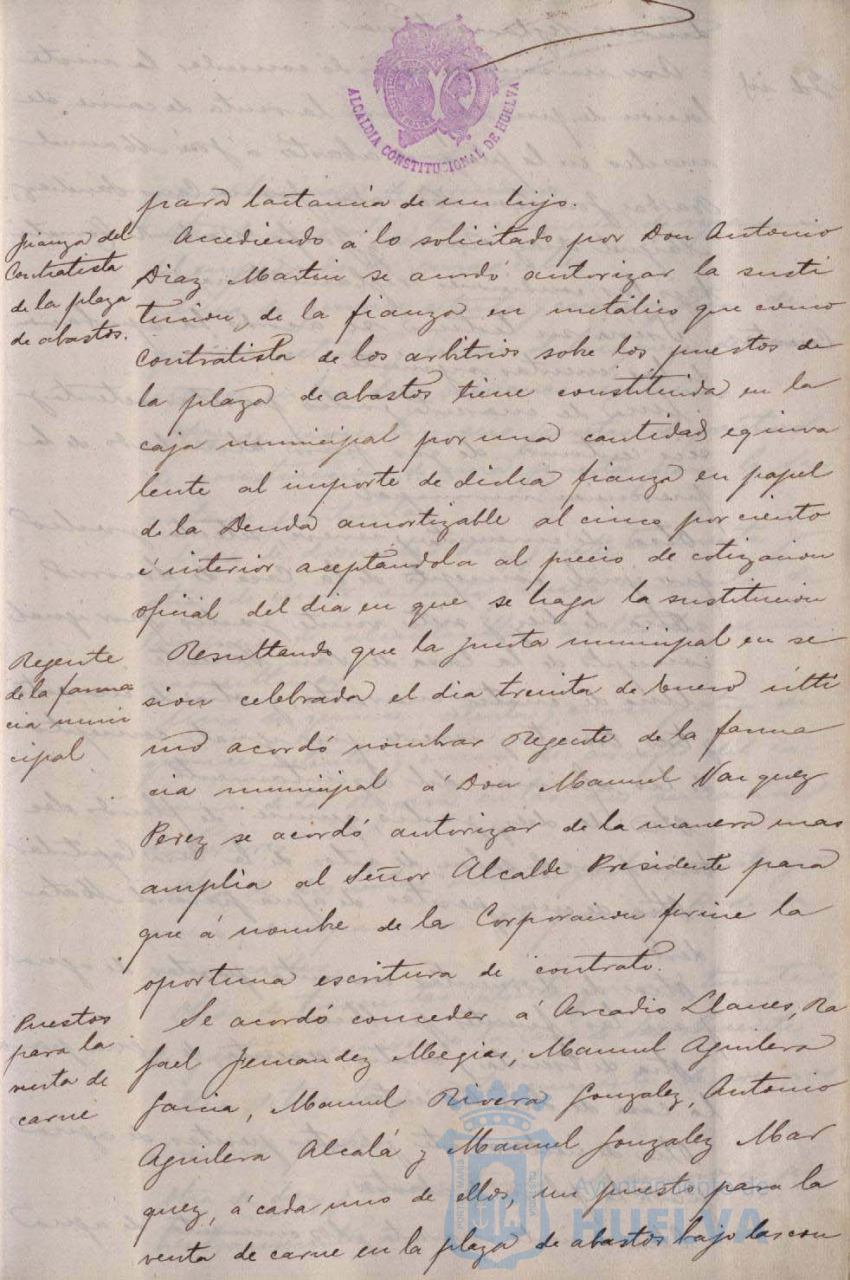 ALCALDIA CONSTITUCIONAL DE HUELVA
para lactancia de un hijo.
fianza del
Contratista
de la plaza
de abastos.
Accediendo á lo solicitado por Don Antonio
Diaz Martin se acordó autorizar la susti
tucion, de la fianza en metálico que como
contratista de los arbitrios sobre los puestos de
la plaza de abastos tiene constituida en la
caja municipal por una cantidad equiva
lente al importe de dicha fianza en papel
de la Deuda amortizable al cinco por ciento
é interior aceptandola al precio de cotizacion
oficial del dia en que se haga la sustitucion
Regente
de la farma
cia muni
cipal
Resultando que la junta municipal en se
sion celebrada el dia treinta de Enero ulti
mo acordó nombrar Regente de la farma
cia municipal á Don Manuel Vazquez
Perez se acordó autorizar de la manera mas
amplia al Señor Alcalde Presidente para
que á nombre de la Corporacion firme la
oportuna escritura de contrato.
Puestos
para la
venta de
carne
Se acordó conceder á Arcadio Llanes, Ra
fael Fernandez Megias, Manuel Aguilera
Garcia, Manuel Rivera Gonzalez, Antonio
Aguilera Alcalá y Manuel Gonzalez Mar
quez, á cada uno de ellos, un puesto para la
venta de carne en la plaza de abastos bajo las con
Ayuntamiento de
HUELVA